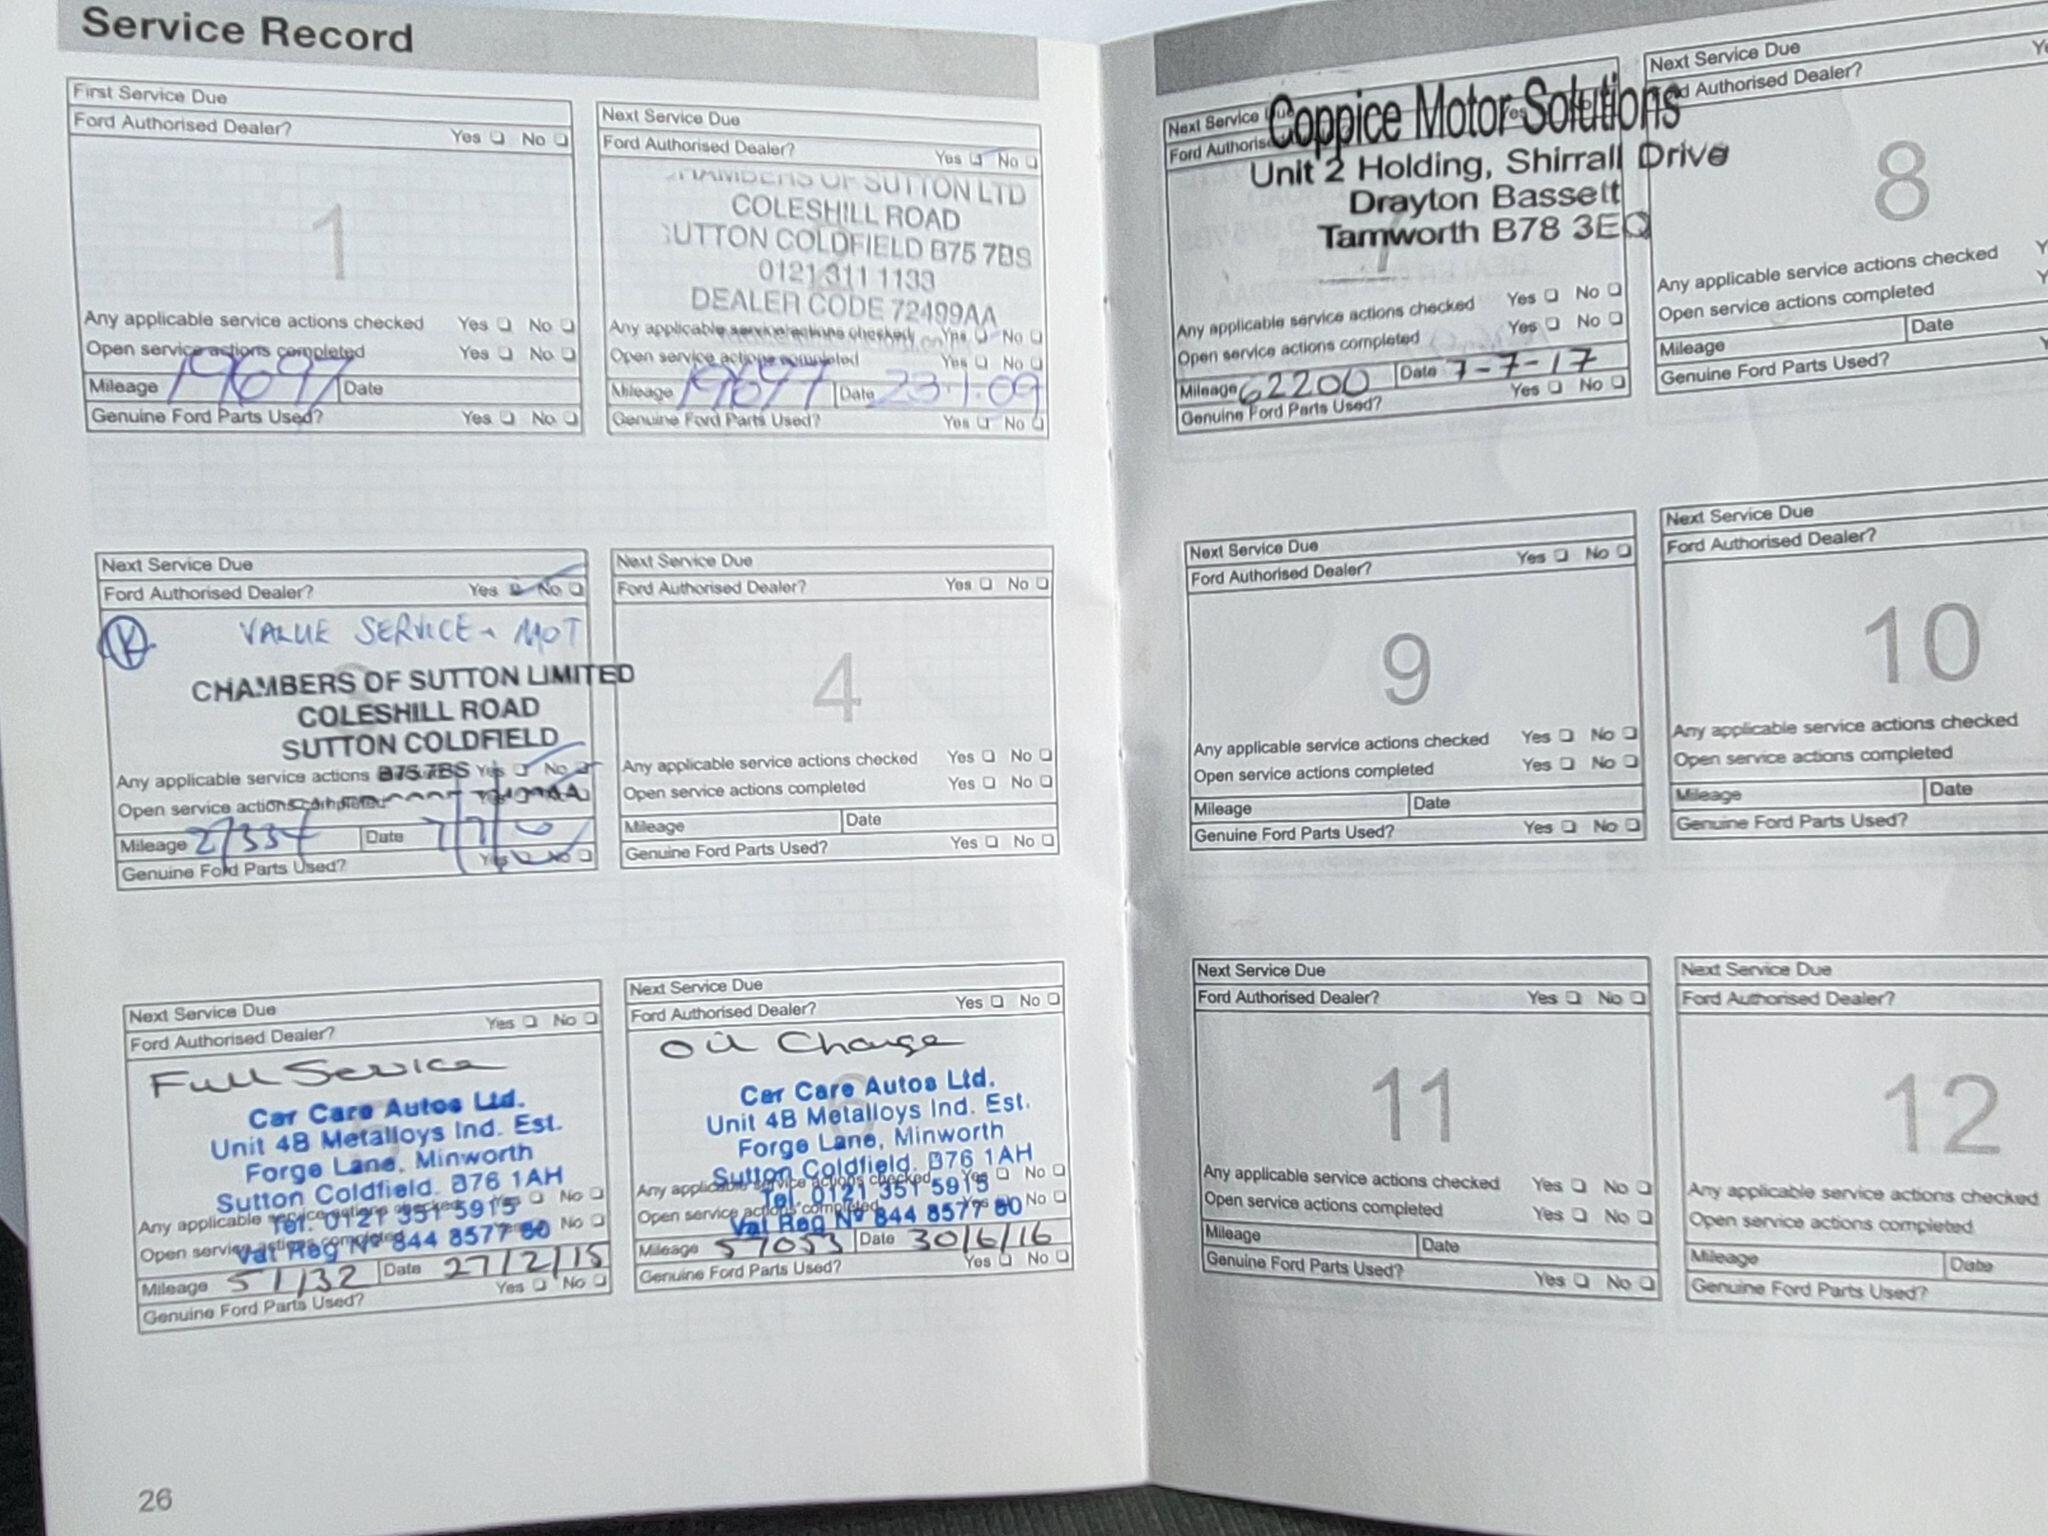 Service Record
First Service Due
Ford Authorised Dealer? Yes No
1
Any applicable service actions checked Yes No
Open service actions completed Yes No
Mileage 19697 Date
Genuine Ford Parts Used? Yes No
Next Service Due
Ford Authorised Dealer? Yes No
CHAMBERS OF SUTTON LTD
COLESHILL ROAD
SUTTON COLDFIELD B75 7BS
0121 311 1133
DEALER CODE 72499AA
Any applicable service actions checked Yes No
Open service actions completed Yes No
Mileage 19697 Date 23.1.09
Genuine Ford Parts Used? Yes No
Next Service Due
Ford Authorised Dealer? Yes No
VALUE SERVICE + MOT
CHAMBERS OF SUTTON LIMITED
COLESHILL ROAD
SUTTON COLDFIELD
B75 7BS
Any applicable service actions Yes No
Open service actions completed
Mileage Date
Genuine Ford Parts Used? Yes No
Next Service Due
Ford Authorised Dealer? Yes No
4
Any applicable service actions checked Yes No
Open service actions completed Yes No
Mileage Date
Genuine Ford Parts Used? Yes No
Next Service Due
Ford Authorised Dealer? Yes No
Full Service
Car Care Autos Ltd.
Unit 4B Metalloys Ind. Est.
Forge Lane, Minworth
Sutton Coldfield. B76 1AH
Tel. 0121 351 5915
Vat Reg Nº 844 8577 60
Any applicable service actions checked Yes No
Open service actions completed Yes No
Mileage 51132 Date 27/2/15
Genuine Ford Parts Used? Yes No
Next Service Due
Ford Authorised Dealer? Yes No
Oil Change
6
Car Care Autos Ltd.
Unit 4B Metalloys Ind. Est.
Forge Lane, Minworth
Sutton Coldfield. B76 1AH
Tel. 0121 351 5915
Vat Reg Nº 844 8577 60
Any applicable service actions checked Yes No
Open service actions completed Yes No
Mileage 57053 Date 30/6/16
Genuine Ford Parts Used? Yes No
26
Next Service Due
Ford Authorised
Coppice Motor Solutions
Unit 2 Holding, Shirrall Drive
Drayton Bassett
Tamworth B78 3EQ
7
Any applicable service actions checked Yes No
Open service actions completed Yes No
Mileage 62200 Date 7-7-17
Genuine Ford Parts Used? Yes No
Next Service Due
Ford Authorised Dealer?
8
Any applicable service actions checked
Open service actions completed
Mileage Date
Genuine Ford Parts Used?
Next Service Due
Ford Authorised Dealer? Yes No
9
Any applicable service actions checked Yes No
Open service actions completed Yes No
Mileage Date
Genuine Ford Parts Used? Yes No
Next Service Due
Ford Authorised Dealer?
10
Any applicable service actions checked
Open service actions completed
Mileage Date
Genuine Ford Parts Used?
Next Service Due
Ford Authorised Dealer? Yes No
11
Any applicable service actions checked Yes No
Open service actions completed Yes No
Mileage Date
Genuine Ford Parts Used? Yes No
Next Service Due
Ford Authorised Dealer?
12
Any applicable service actions checked
Open service actions completed
Mileage Date
Genuine Ford Parts Used?